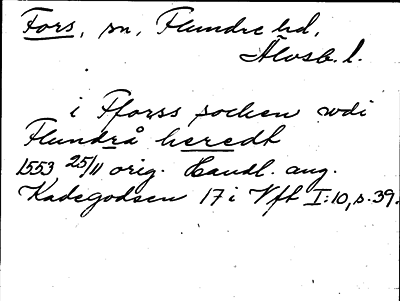 Fors, sn, Flundre hd,
Älvsb. l.
i Fforss sochen vdi
Flundrå heredt
1553 25/11 orig. Handl. ang.
Kadegodsen 17 i Vft I:10, s. 39.